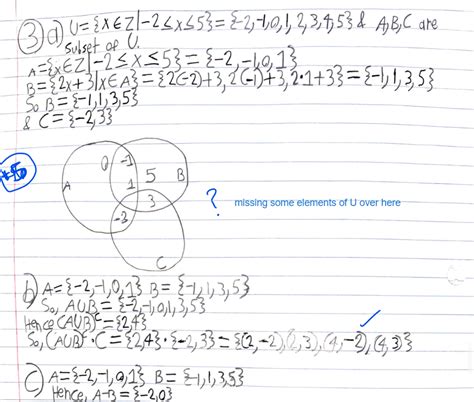 ③ a) U = {x∈Z|-2≤x≤5} = {-2,-1,0,1,2,3,4,5} & A,B,C are
subset of U.
A={x∈Z|-2≤x≤5} = {-2,-1,0,1}
B={2x+3|x∈A} = {2(-2)+3, 2(-1)+3, 2·1+3} = {-1,1,3,5}
So B = {-1,1,3,5}
& C = {-2,3}
0 -1
A 1 5 B
3
-2
C
? missing some elements of U over here
b) A={-2,-1,0,1} B = {-1,1,3,5}
So, A∪B = {-2,-1,0,1,3,5}
Hence (A∪B)ᶜ = {2,4}
So, (A∪B)ᶜ · C = {2,4}·{-2,3} = {(2,-2),(2,3),(4,-2),(4,3)}
c) A={-2,-1,0,1} B = {-1,1,3,5}
Hence, A-B = {-2,0}